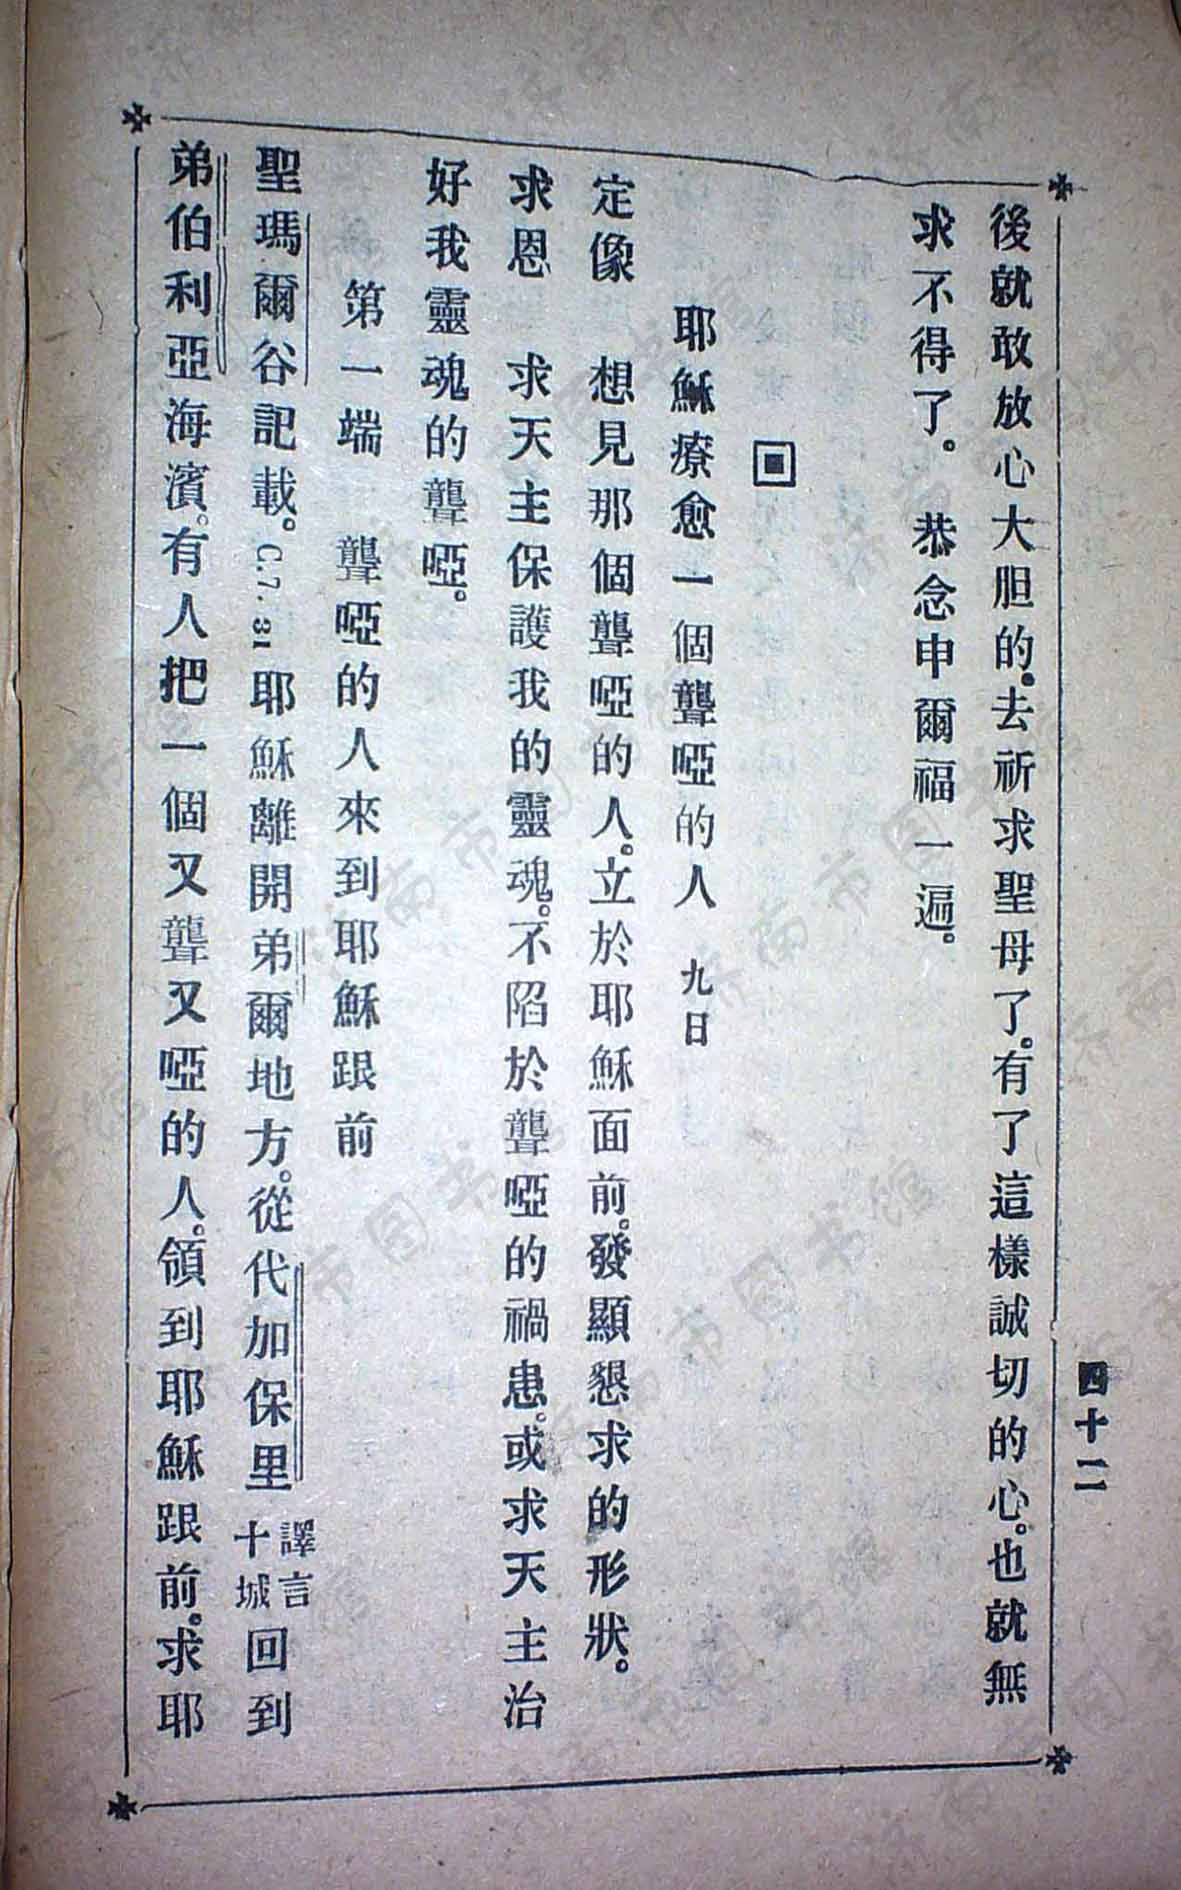 四十二
後就敢放心大胆的。去祈求聖母了。有了這樣誠切的心。也就無
求不得了。 恭念申爾福一遍。
耶穌療愈一個聾啞的人 九日
定像 想見那個聾啞的人。立於耶穌面前。發顯懇求的形狀。
求恩 求天主保護我的靈魂。不陷於聾啞的禍患。或求天主治
好我靈魂的聾啞。
第一端 聾啞的人來到耶穌跟前
聖瑪爾谷記載。C.7.31耶穌離開弟爾地方。從代加保里譯言十城回到
弟伯利亞海濱。有人把一個又聾又啞的人。領到耶穌跟前。求耶
济南市图书馆